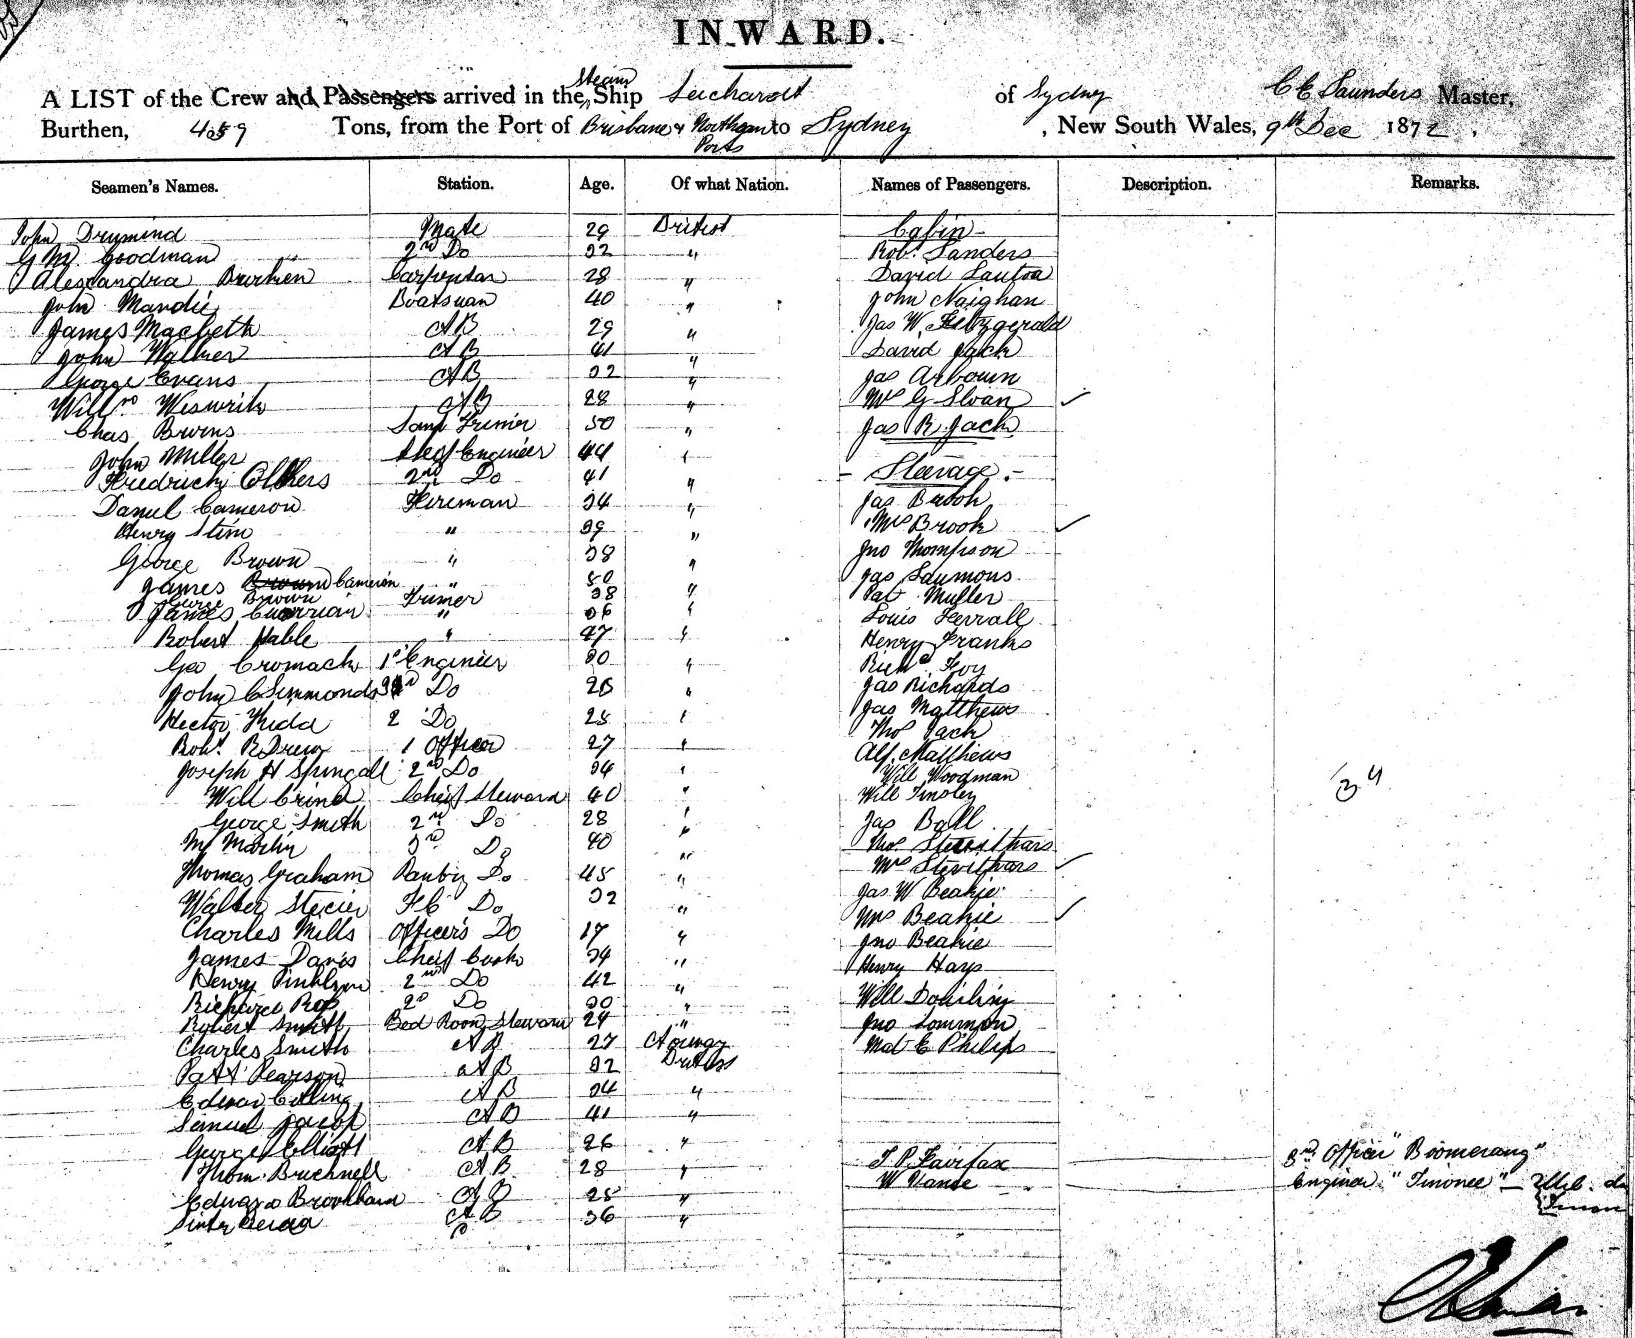 INWARD.
A LIST of the Crew and Passengers arrived in the Steam Ship Leichardt of Sydney C E Saunders Master,
Burthen, 459 Tons, from the Port of Brisbane & Northern Ports to Sydney, New South Wales, 9th Dec 1872.
Seamen's Names. Station. Age. Of what Nation. Names of Passengers. Description. Remarks.
John Drumind Mate 29 British Cabin
G M Goodman 2nd Do 32 " Robt Sanders
Alexandra Carpentar 28 " David
John Mandie Boatsuan 40 " John Naighan
James Macbeth AB 29 " Jas W Fitzgerald
John Walker AB 41 " David Jack
George Evans AB 32 " Jas
Willm AB 28 " Mrs G Sloan
Chas Burns Lamp Trimer 50 " Jas R Jack
John Miller Engineer 44 " Steerage
Fredrick 2nd Do 41 " Jas Brook
Daniel Cameron Fireman 34 " Mrs Brook
Henry Stim " 39 " Jno Thompson
George Brown " 38 " Jas
James Brown Cameron " 50 " Pat Muller
George Brown Trimer 38 " Louis Ferrall
James " 36 " Henry Franks
Robert Hable " 47 " Richd Foy
Geo Cromack 1st Engineer 30 " Jas Richards
John C Simmonds 3rd Do 26 " Jas Matthews
Hector Kidd 2 Do 25 " Thos Jack
Robt R Drew 1 Officer 27 " Alf. Matthews
Joseph H Springall 2nd Do 34 " Will Woodman
Will Crind Cheif Steward 40 " Will Tinsley
George Smith 2nd Do 28 " Jas Ball
M Martin 3rd Do 40 " Thos
Thomas Graham Pantry Do 45 " Mrs
Walter F C Do 32 " Jas W Beakie
Charles Mills Officer's Do 17 " Mrs Beakie
James Davis Cheif Cook 34 " Jno Beakie
Henry 2nd Do 42 " Henry Hays
Richard 3rd Do 30 " Will Dowling
Robert Smith Bed Room Steward 24 " Jno
Charles Smith AB 27 Norway Md E Philips
Patk Pearson AB 32 British
Edward Collins AB 34 "
Samuel Jacob AB 41 "
George Elliott AB 26 "
Thom Brucknell AB 28 " T P Fairfax 3rd Officer "Boomerang"
Edward Brookham AB 25 " W Vance Engineer "Tinonee"
AB 36 "
34